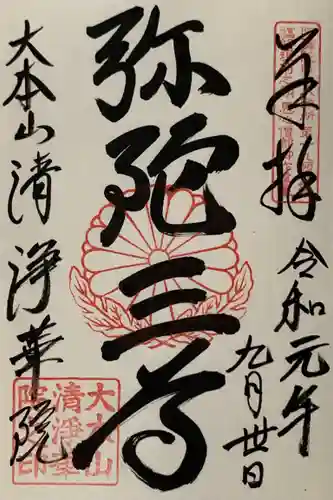 奉拝
令和元年
九月廿日
弥陀三尊
大本山清浄華院
大本山
清浄華
院印